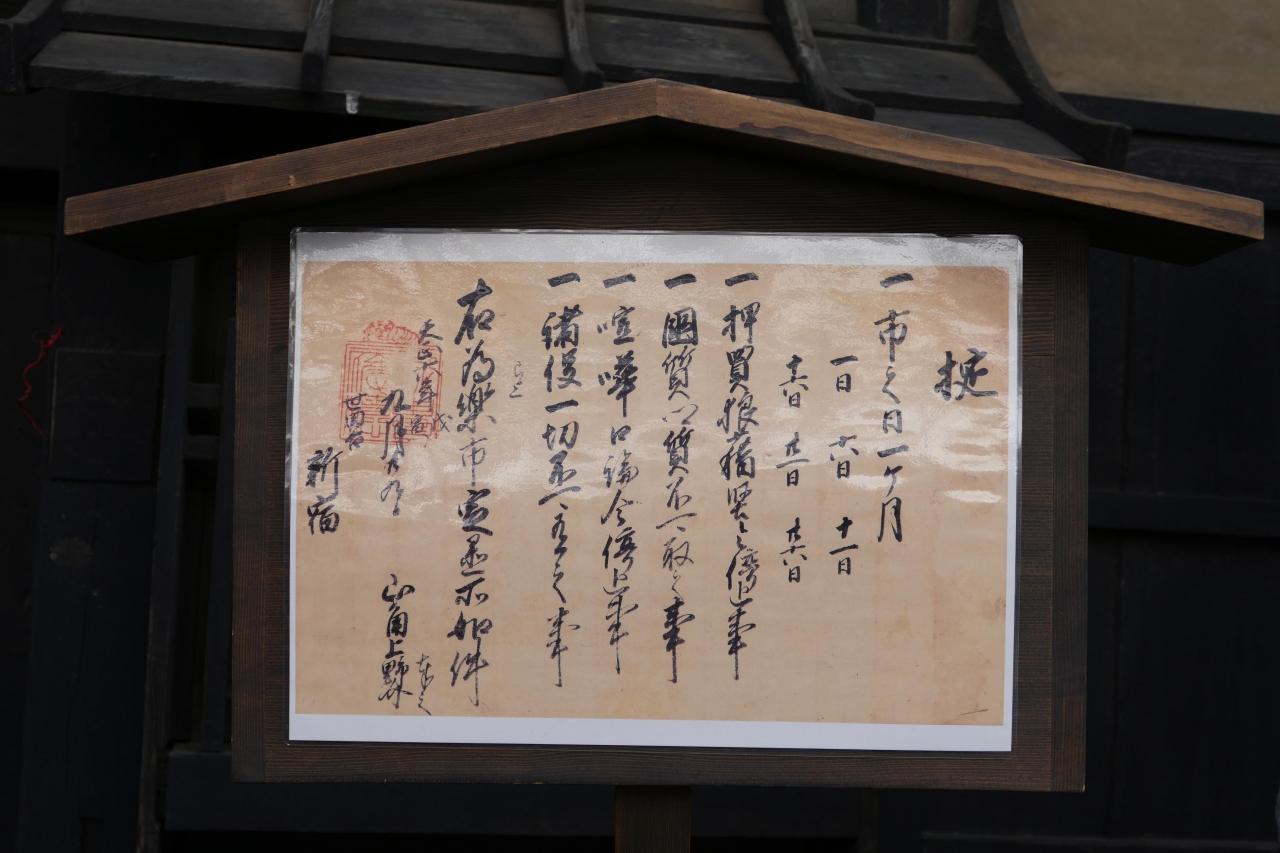 掟
一 市之日一ヶ月
一日 六日 十一日
十六日 廿一日 廿六日
一 押買狼藉堅令停止事
一 國質郷質不可取之事
一 喧嘩口論令停止事
一 諸役一切不可有之事
右為樂市定置所如件
天正六年戊寅
九月廿九日 山角上野介 奉之
世田谷
新宿